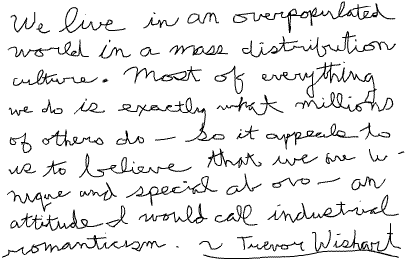 We live in an overpopulated
world in a mass distribution
culture. Most of everything
we do is exactly what millions
of others do — so it appeals to
us to believe that we are u-
nique and special ab ovo — an
attitude I would call industrial
romanticism. ~ Trevor Wishart